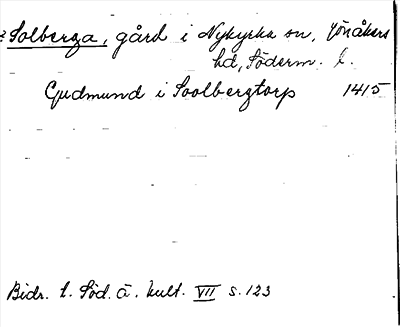 Solberga, gård i Nykyrka sn, Jönåkers
hd, Söderm. l.
Gudmund i Soolbergtorp 1415
Bidr. t. Söd. ä. kult. VII s. 123